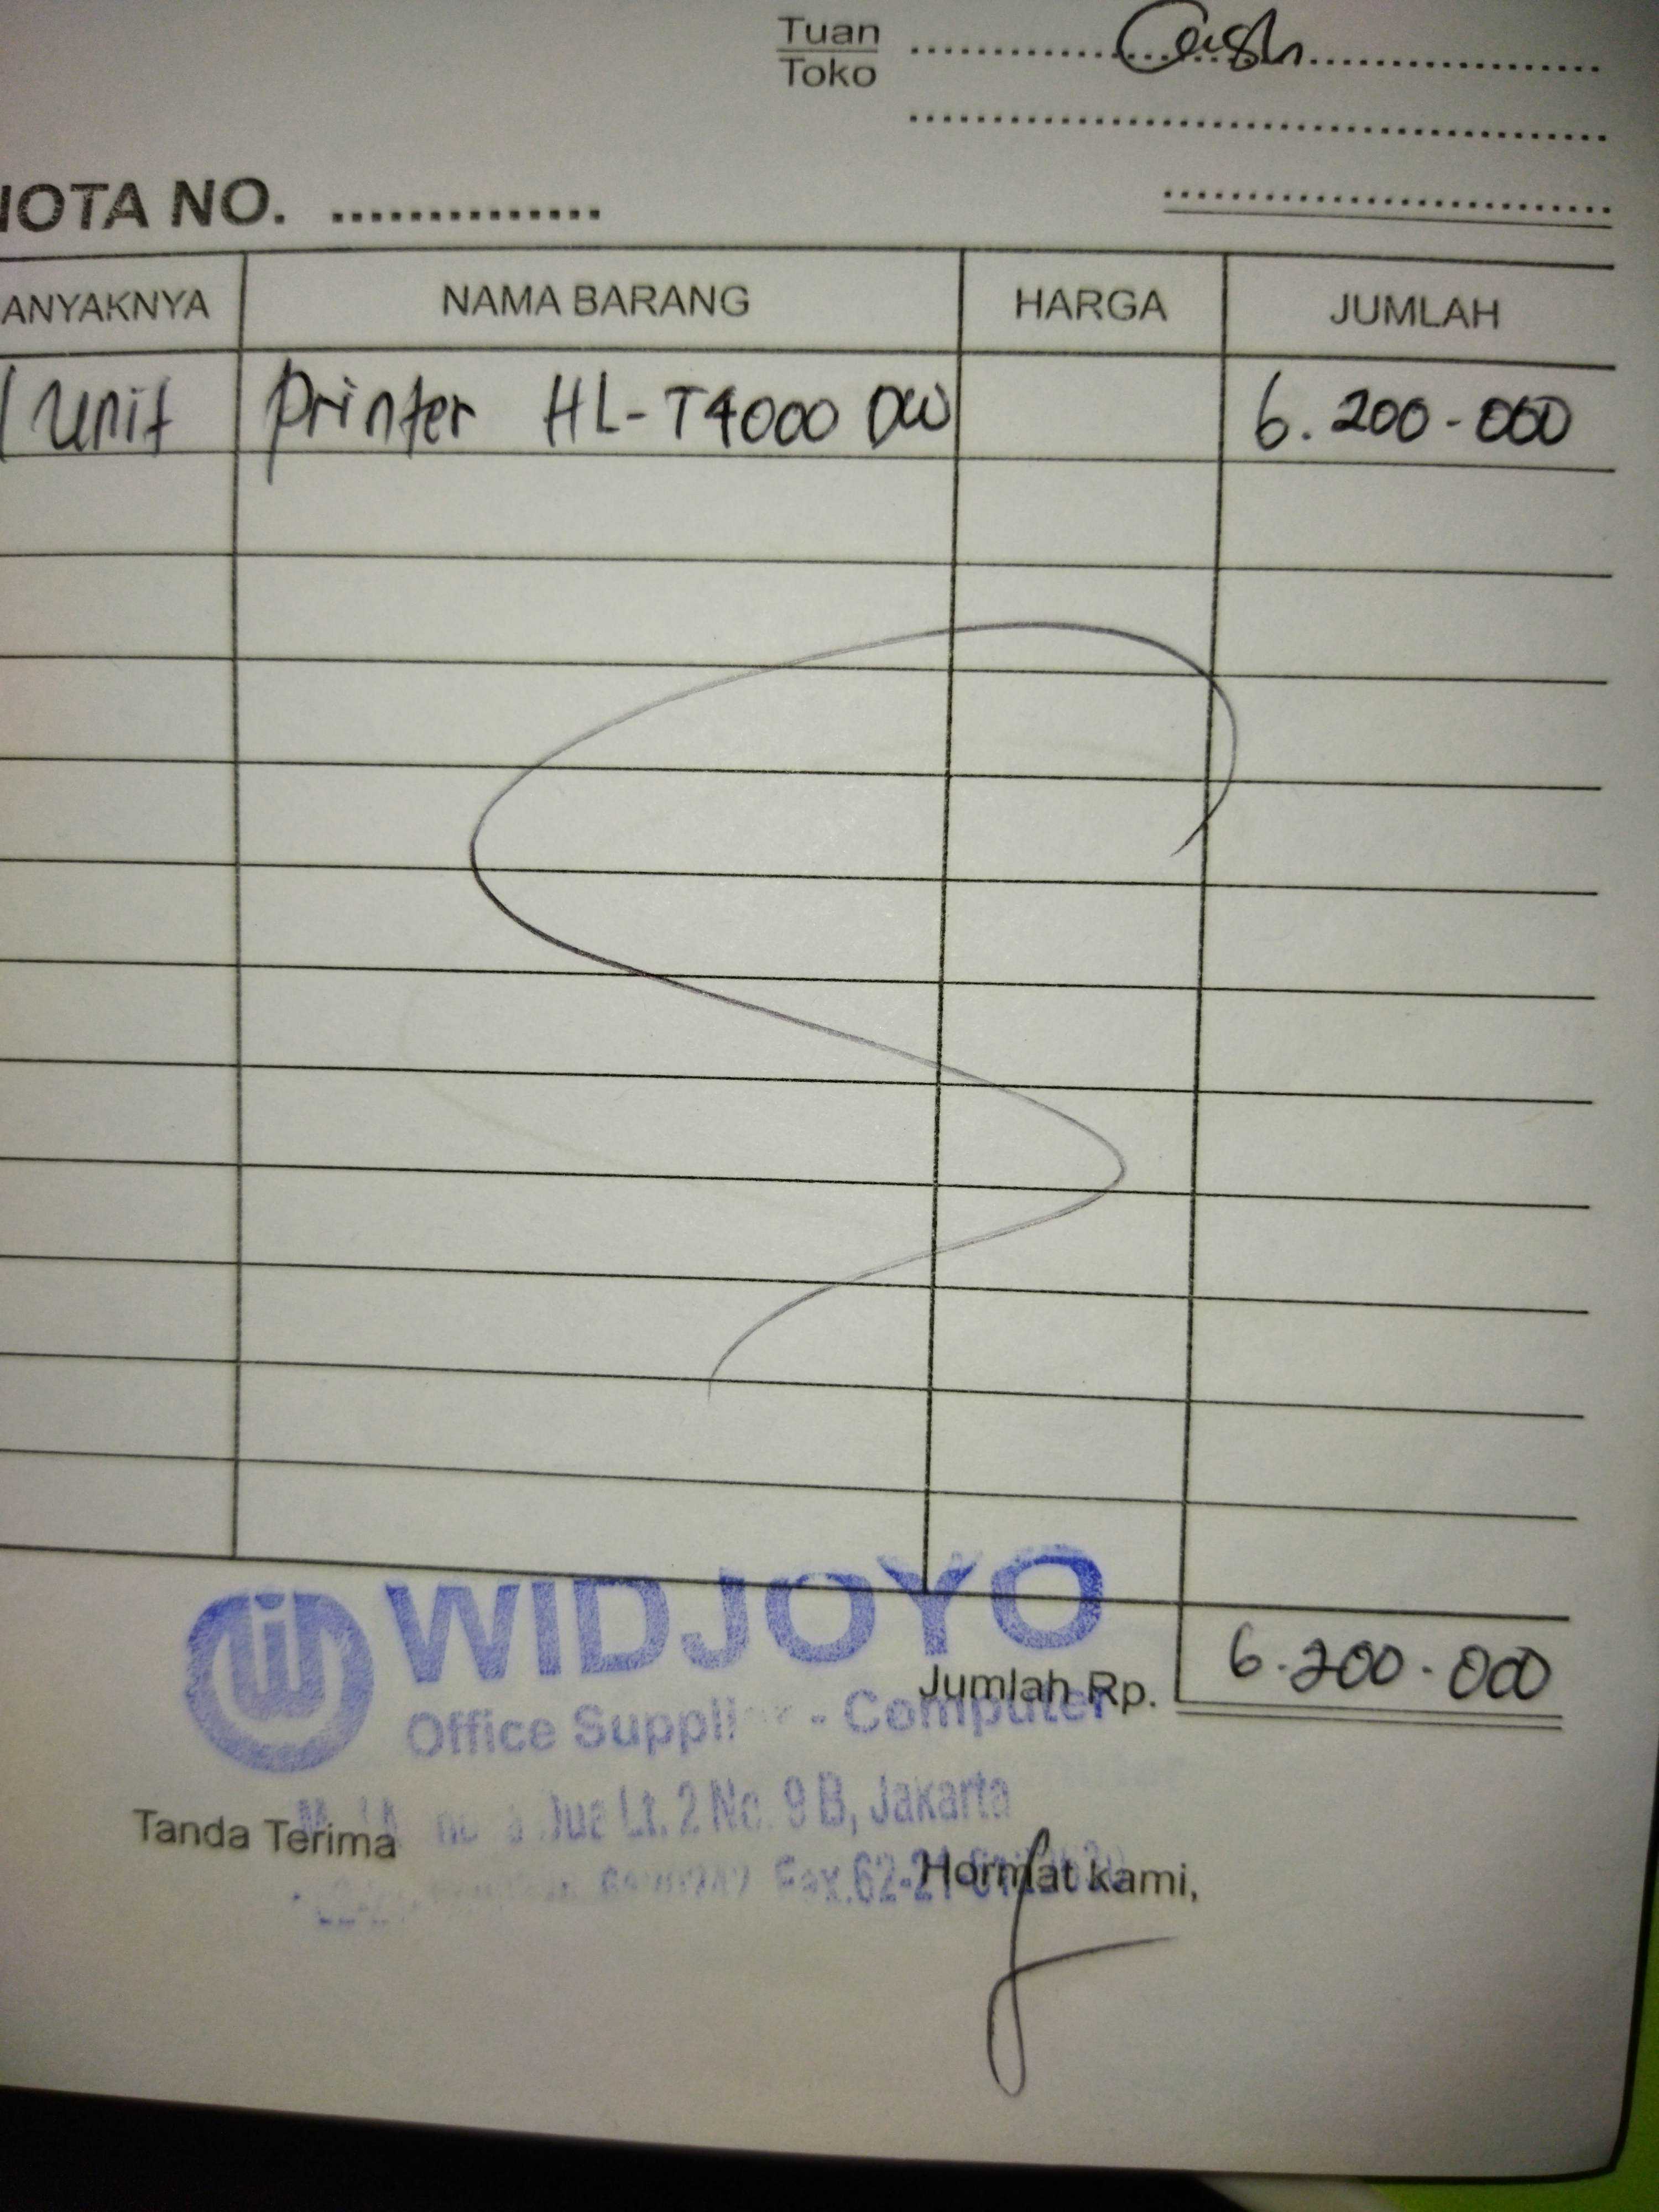 Tuan Cash
Toko
NOTA NO. ..............
ANYAKNYA NAMA BARANG HARGA JUMLAH
1 Unit Printer HL-T4000 DW 6.200-000
WIDJOYO
Jumlah Rp. 6.200.000
Office - Computer
Lt. 2 No. 9 B, Jakarta
Tanda Terima
Fax.62-21
Hormat kami,